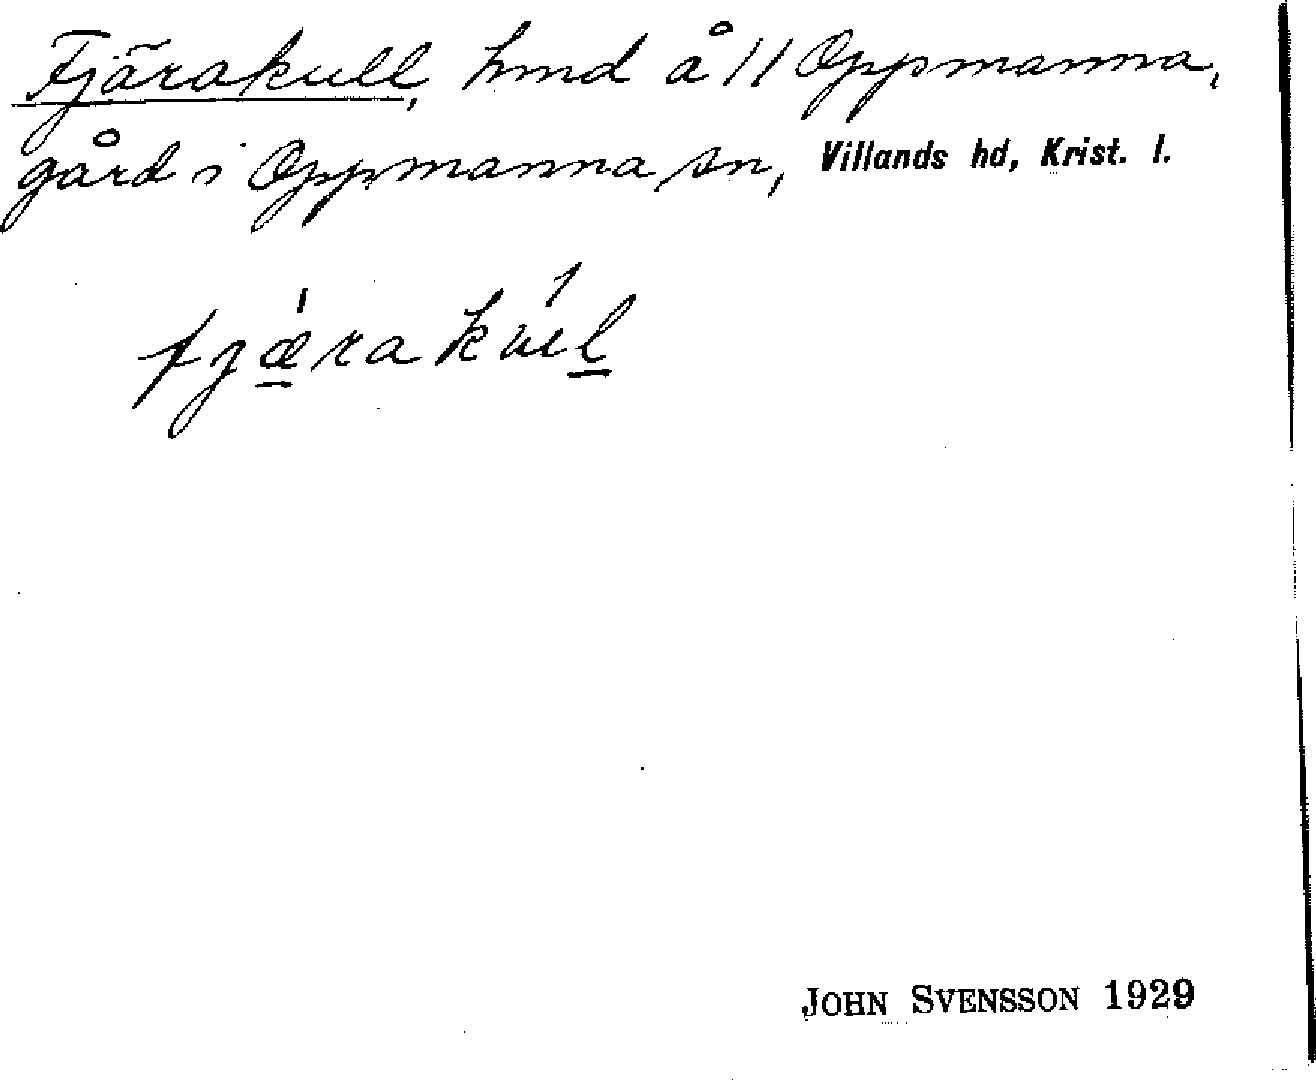 Fjärakull, hmd å 11 Oppmanna,
gård i Oppmanna sn, Villands hd, Krist. l.
fjærakul
JOHN SVENSSON 1929